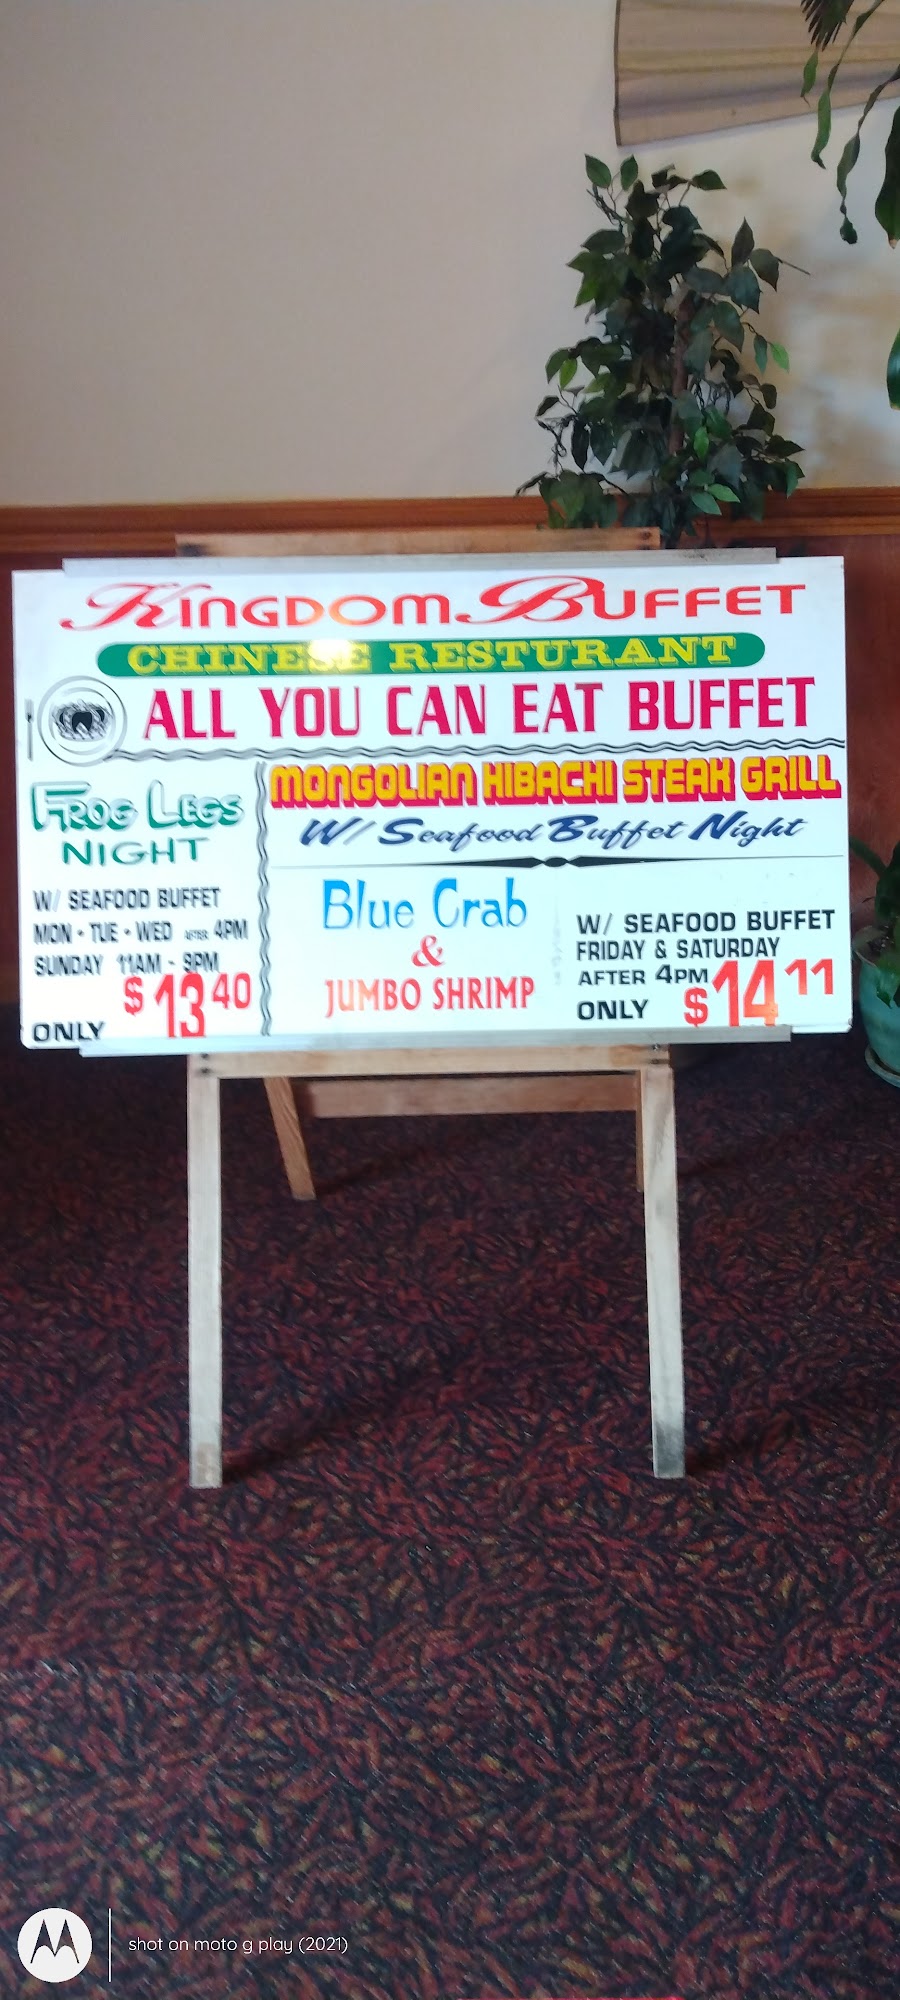 KINGDOM BUFFET
CHINESE RESTURANT
ALL YOU CAN EAT BUFFET
FROG LEGS
NIGHT
W/ SEAFOOD BUFFET
MON • TUE • WED AFTER 4PM
SUNDAY 11AM - 9PM
ONLY $13.40
MONGOLIAN HIBACHI STEAK GRILL
W/ Seafood Buffet Night
Blue Crab
&
JUMBO SHRIMP
W/ SEAFOOD BUFFET
FRIDAY & SATURDAY
AFTER 4PM
ONLY $14 11
shot on moto g play (2021)